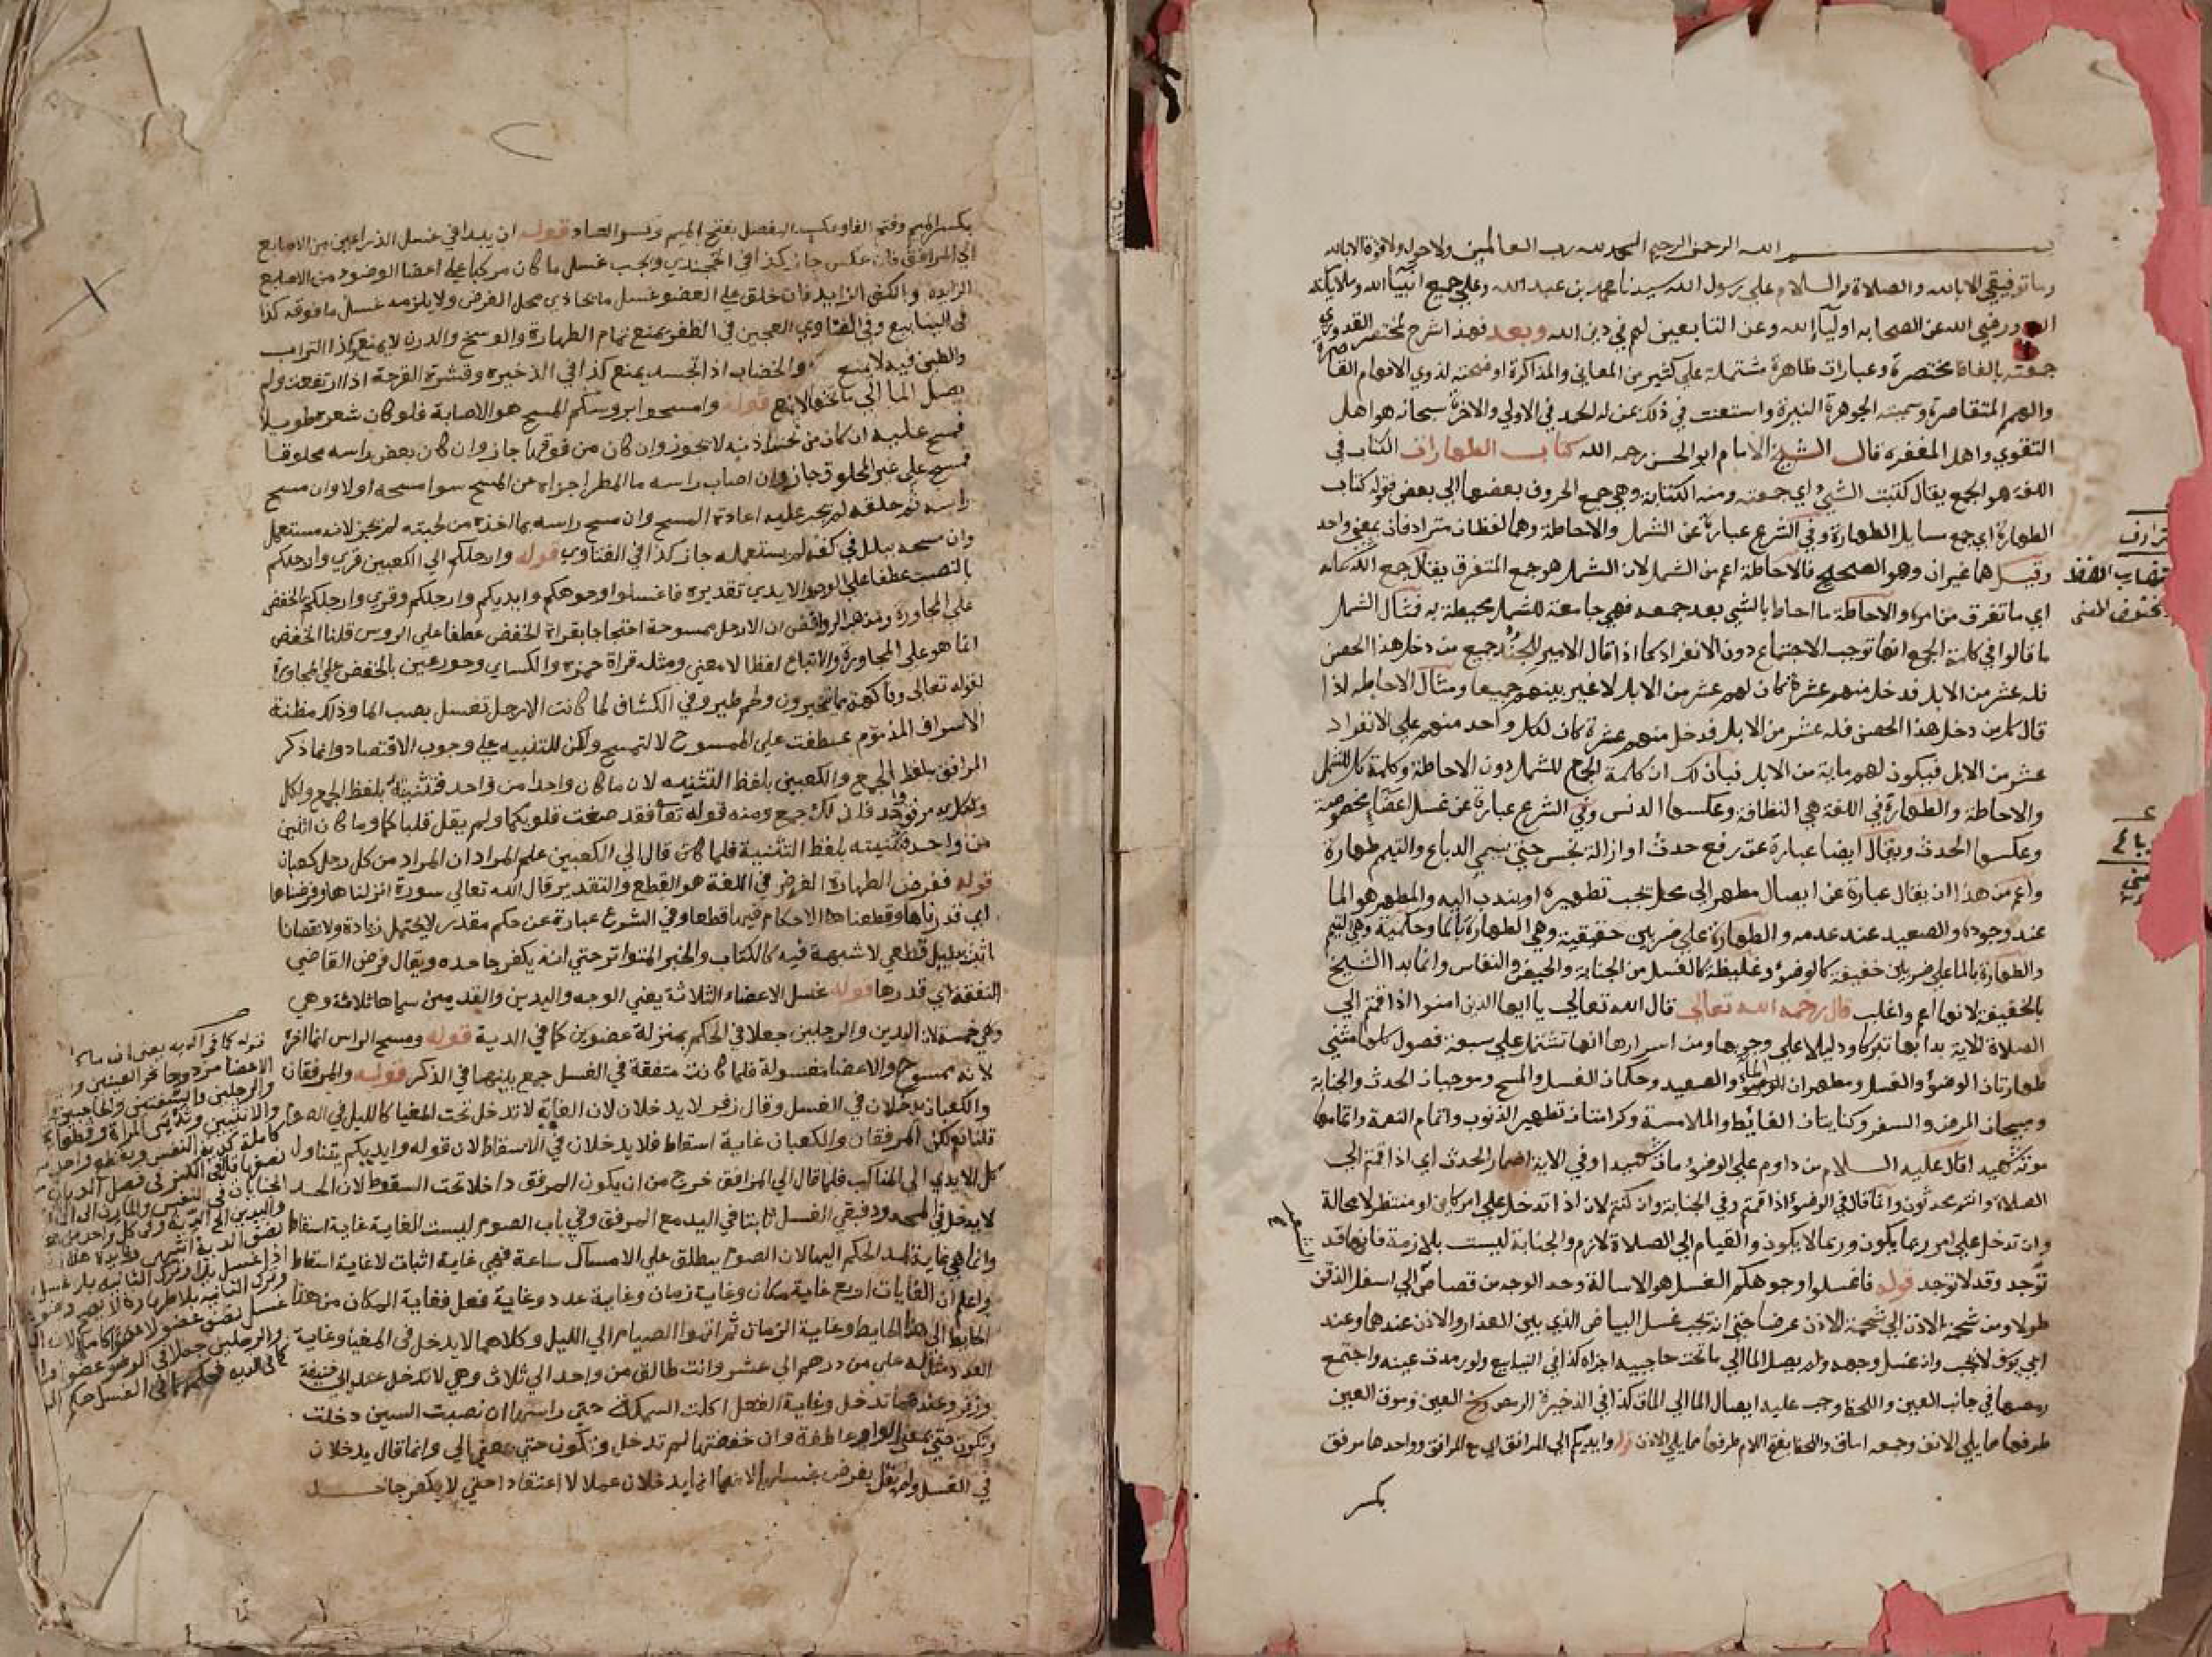 بسم الله الرحمن الرحيم الحمد لله رب العالمين ولا حول ولا قوة الا بالله
وما توفيقي الا بالله والصلاة والسلام علي رسول الله سيدنا محمد بن عبد الله وعلي جميع انبيآ الله وملايكته
ورضي الله عن الصحابه اوليآ الله وعن التابعين لهم في دين الله وبعد فهذا شرح لمختصر القدوري
جمعته بالفاظ مختصرة وعبارات ظاهرة مشتملة علي كثير من المعاني والمذاكرة اوضحته لذوي الافهام القاصرة
والهمم المتقاصرة وسميته الجوهرة النيرة واستعنت في ذلك بمن له الحمد في الاولي والاخرة سبحانه هو اهل
التقوي واهل المغفرة قال الشيخ الامام ابو الحسن رحمه الله كتاب الطهارات الكتاب في
اللغة هو الجمع يقال كتبت الشئ اي جمعته ومنه الكتابة وهي جمع الحروف بعضها الي بعض فقوله كتاب
الطهارة اي جمع مسايل الطهارة وفي الشرع عبارة عن الشمل والاحاطة وهما لفظان مترادفان بمعني واحد
وقيل هما غيران وهو الصحيح فالاحاطة اعم من الشمل لان الشمل هو جمع المتفرق يقال جمع الله شمله
اي ما تفرق من امره والاحاطة ما احاط بالشي بعد جمعه فهي جامعة للشمل محيطة به فمثال الشمل
ما قالوا في كلمة الجمع انها توجب الاجتماع دون الانفراد كما اذا قال الامير للجند جميع من دخل هذا الحصن
فله عشر من الابل فدخل منهم عشرة كان لهم عشر من الابل لا غير بينهم جميعا ومثال الاحاطه اذا
قال كل من دخل هذا الحصن فله عشر من الابل فدخل منهم عشرة كان لكل واحد منهم علي الانفراد
عشر من الابل فيكون لهم ماية من الابل فبان لك ان كلمة الجمع للشمل دون الاحاطة وكلمة كل للشمل
والاحاطة والطهارة في اللغة هي النظافة وعكسها الدنس وفي الشرع عبارة عن غسل اعضآ مخصوصة
وعكسها الحدث ويقال ايضا عبارة عن رفع حدث او ازالة نجس حتي يسمي الدباغ والتيمم طهارة
واعم من هذا ان يقال عبارة عن ايصال مطهر الي محل يجب تطهيره او يندب اليه والمطهر هو الما
عند وجوده والصعيد عند عدمه والطهارة علي ضربين حقيقية وهي الطهارة بالما وحكمية وهي التيمم
والطهارة بالما علي ضربين خفيفة كالوضوء وغليظة كالغسل من الجنابة والحيض والنفاس وانما بدا الشيخ
بالخفيفة لانها اعم واغلب قال رحمه الله تعالي قال الله تعالي يا ايها الذين امنوا اذا قمتم الي
الصلاة الاية بدا بها تبركا ودليلا علي وجوبها ومن اسرارها انها تشتمل علي سبعة فصول كلها مثني
طهارتان الوضوء والغسل ومطهران الما والصعيد وحكمان الغسل والمسح وموجبان الحدث والجنابة
ومبيحان المرض والسفر وكنايتان الغائط والملامسة وكرامتان تطهير الذنوب واتمام النعمة واتمامها
موته شهيدا قال عليه السلام من داوم علي الوضوء مات شهيدا وفي الاية اضمار الحدث اي اذا قمتم الي
الصلاة وانتم محدثون وانما قال في الوضوء اذا قمتم وفي الجنابة وان كنتم لان اذا تدخل علي امر كاين او منتظر لا محالة
وان تدخل علي امر ربما يكون وربما لا يكون والقيام الي الصلاة لازم والجنابة ليست بلازمة فانها قد
توجد وقد لا توجد قوله فاغسلوا وجوهكم الغسل هو الاسالة وحد الوجه من قصاص الي اسفل الذقن
طولا ومن شحمة الاذن الي شحمة الاذن عرضا حتي انه يجب غسل البياض الذي بين العذار والاذن عندهما وعند
ابي يوسف لا يجب وان غسل وجهه ولم يصل الما الي ما تحت حاجبيه اجزاه كذا في الينابيع ولو رمدت عينه واجتمع
رمصها في جانب العين واللحظ وجب عليه ايصال الما الي المآق كذا في الذخيرة الرمص وسخ العين وموق العين
طرفها مما يلي الانف وجمعه اماق واللحظ بفتح اللام طرفها مما يلي الاذن قوله وايديكم الي المرافق اي مع المرافق وواحدها مرفق
بكسر
بكسر الميم وفتح الفا وبكسر المفصل بفتح الميم وكسر الصاد قوله ان يبدا في غسل الذراعين من الاصابع
الي المرافق فان عكس جاز كذا في الخجندي ويجب غسل ما كان مركبا علي اعضا الوضوء من الاصابع
الزايده والكف الزايد فان خلق علي العضو غسل ما يحاذي محل الفرض ولا يلزمه غسل ما فوقه كذا
في الينابيع وفي الفتاوي العجين في الظفر يمنع تمام الطهارة والوسخ والدرن لا يمنع وكذا التراب
والطين فيه لا يمنع والخضاب اذا تجسد يمنع كذا في الذخيره وقشرة القرحة اذا ارتفعت ولم
يصل الما الي ما تحتها لا يمنع قوله وامسحوا بروسكم المسح هو الاصابة فلو كان شعره طويلا
فمسح عليه ان كان من تحت اذنيه لا يجوز وان كان من فوقها جاز وان كان بعض راسه محلوقا
فمسح علي غير المحلوق جاز وان اصاب راسه ما المطر اجزاه عن المسح سوا مسحه او لا وان مسح
راسه ثم حلقه لم يجب عليه اعادة المسح وان مسح راسه بما اخذه من لحيته لم يجز لانه مستعمل
وان مسحه ببلل في كفه لم يستعمله جاز كذا في الفتاوي قوله وارجلكم الي الكعبين قري وارجلكم
بالنصب عطفا علي الوجه والايدي تقديره فاغسلوا وجوهكم وايديكم وارجلكم وقري وارجلكم بالخفض
علي المجاورة ومذهب الروافض ان الارجل ممسوحة احتجاجا بقراة الخفض عطفا علي الروس قلنا الخفض
انما هو علي المجاورة والاتباع لفظا لا معني ومثله قراة حمزه والكساي وحور عين بالخفض علي المجاورة
لقوله تعالي وفاكهة مما يتخيرون ولحم طير وفي الكشاف لما كانت الارجل تغسل بصب الما وذلك مظنة
الاسراف المذموم عطفت علي الممسوح لا لتمسح ولكن للتنبيه علي وجوب الاقتصاد وانما ذكر
المرافق بلفظ الجمع والكعبين بلفظ التثنيه لان ما كان واحدا من واحد فتثنيته بلفظ الجمع ولكل
يد مرفق واحد فلذلك جمع ومنه قوله تعا فقد صغت قلوبكما ولم يقل قلباكما وما كان اثنين
من واحد فتثنيته بلفظ التثنية فلما قال الي الكعبين علم المراد ان المراد من كل رجل كعبان
قوله ففرض الطهارة الفرض في اللغة هو القطع والتقدير قال الله تعالي سورة انزلناها وفرضناها
اي قدرناها وقطعنا الاحكام فيها قطعا وفي الشرع عبارة عن حكم مقدر لا يحتمل زيادة ولا نقصانا
ثبت بدليل قطعي لا شبهة فيه كالكتاب والخبر المتواتر حتي انه يكفر جاحده ويقال فرض القاضي
النفقة اي قدرها قوله غسل الاعضاء الثلاثة يعني الوجه واليدين والقدمين سماها ثلاثة وهي
وهي خمسة لان اليدين والرجلين جعلا في الحكم بمنزلة عضوين كما في الدية قوله ومسح الراس انما اخره
لانه ممسوح والاعضا مغسولة فلما كانت متفقة في الغسل جمع بينهما في الذكر قوله والمرفقان
والكعبان يدخلان في الغسل وقال زفر لا يدخلان لان الغاية لا تدخل تحت المغيا كالليل في الصوم
قلنا نعم لكن المرفقان والكعبان غاية اسقاط فلا يدخلان في الاسقاط لان قوله وايديكم يتناول
كل الايدي الي المناكب فلما قال الي المرافق خرج من ان يكون المرفق داخلا تحت السقوط لان الحد
لا يدخل في المحدود فبقي الغسل ثابتا في اليد مع المرفق وفي باب الصوم ليست الغاية غاية اسقاط
وانما هي غاية لمد الحكم اليها لان الصوم يطلق علي الامساك ساعة فهي غاية اثبات لا غاية اسقاط
واعلم ان الغايات اربع غاية مكان وغاية زمان وغاية عدد وغاية فعل فغاية المكان من هذا
الحايط الي هذا الحايط وغاية الزمان ثم اتموا الصيام الي الليل وكلاهما لا يدخل في المغيا وغاية
العدد مثاله علي من درهم الي عشر وانت طالق من واحد الي ثلاث وهي لا تدخل عند ابي حنيفة
وزفر وعندهما تدخل وغاية الفعل اكلت السمكة حتي راسها ان نصبت السين دخلت
وتكون حتي بمعني الواو عاطفة وان خفضتها لم تدخل وتكون حتي بمعني الي وانما قال يدخلان
في الغسل ولم يقل بفرض غسلهما لانهما انما يدخلان عملا لا اعتقادا حتي لا يكفر جاحد